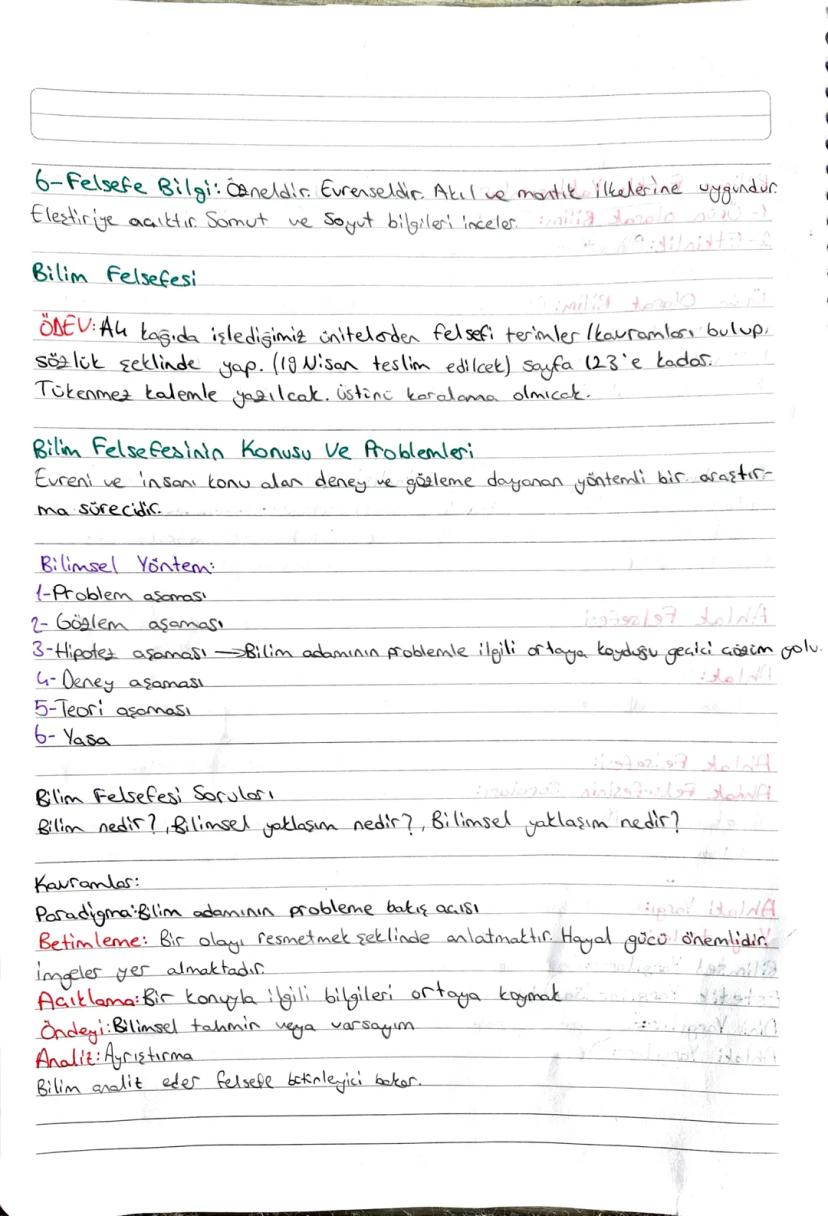 6-Felsefe Bilgi: Özneldir. Evrenseldir. Akıl ve mantık ilkelerine uygundur.
Eleştiriye açıktır. Somut ve soyut bilgileri inceler.
Bilim Felsefesi
ÖDEV: A4 kağıda işlediğimiz ünitelerden felsefi terimler/kavramları bulup,
sözlük şeklinde yap. (19 Nisan teslim edilcek) sayfa 123'e kadar.
Tükenmez kalemle yazılcak. üstünü karalama olmıcak.
Bilim Felsefesinin Konusu Ve Problemleri
Evreni ve insanı konu alan deney ve gözleme dayanan yöntemli bir araştır-
ma sürecidir.
Bilimsel Yöntem:
1-Problem aşaması
2- Gözlem aşaması
3-Hipotez aşaması → Bilim adamının problemle ilgili ortaya koyduğu geçici çözüm yolu.
4- Deney aşaması
5-Teori aşaması
6- Yasa
Bilim Felsefesi Soruları
Bilim nedir?, Bilimsel yaklaşım nedir?, Bilimsel yaklaşım nedir?
Kavramlar:
Paradigma: Bilim adamının probleme bakış açısı
Betimleme: Bir olayı resmetmek şeklinde anlatmaktır. Hayal gücü önemlidir.
imgeler yer almaktadır.
Açıklama: Bir konuyla ilgili bilgileri ortaya koymak
Öndeyi: Bilimsel tahmin veya varsayım
Analiz: Ayrıştırma
Bilim analiz eder felsefe bakar.